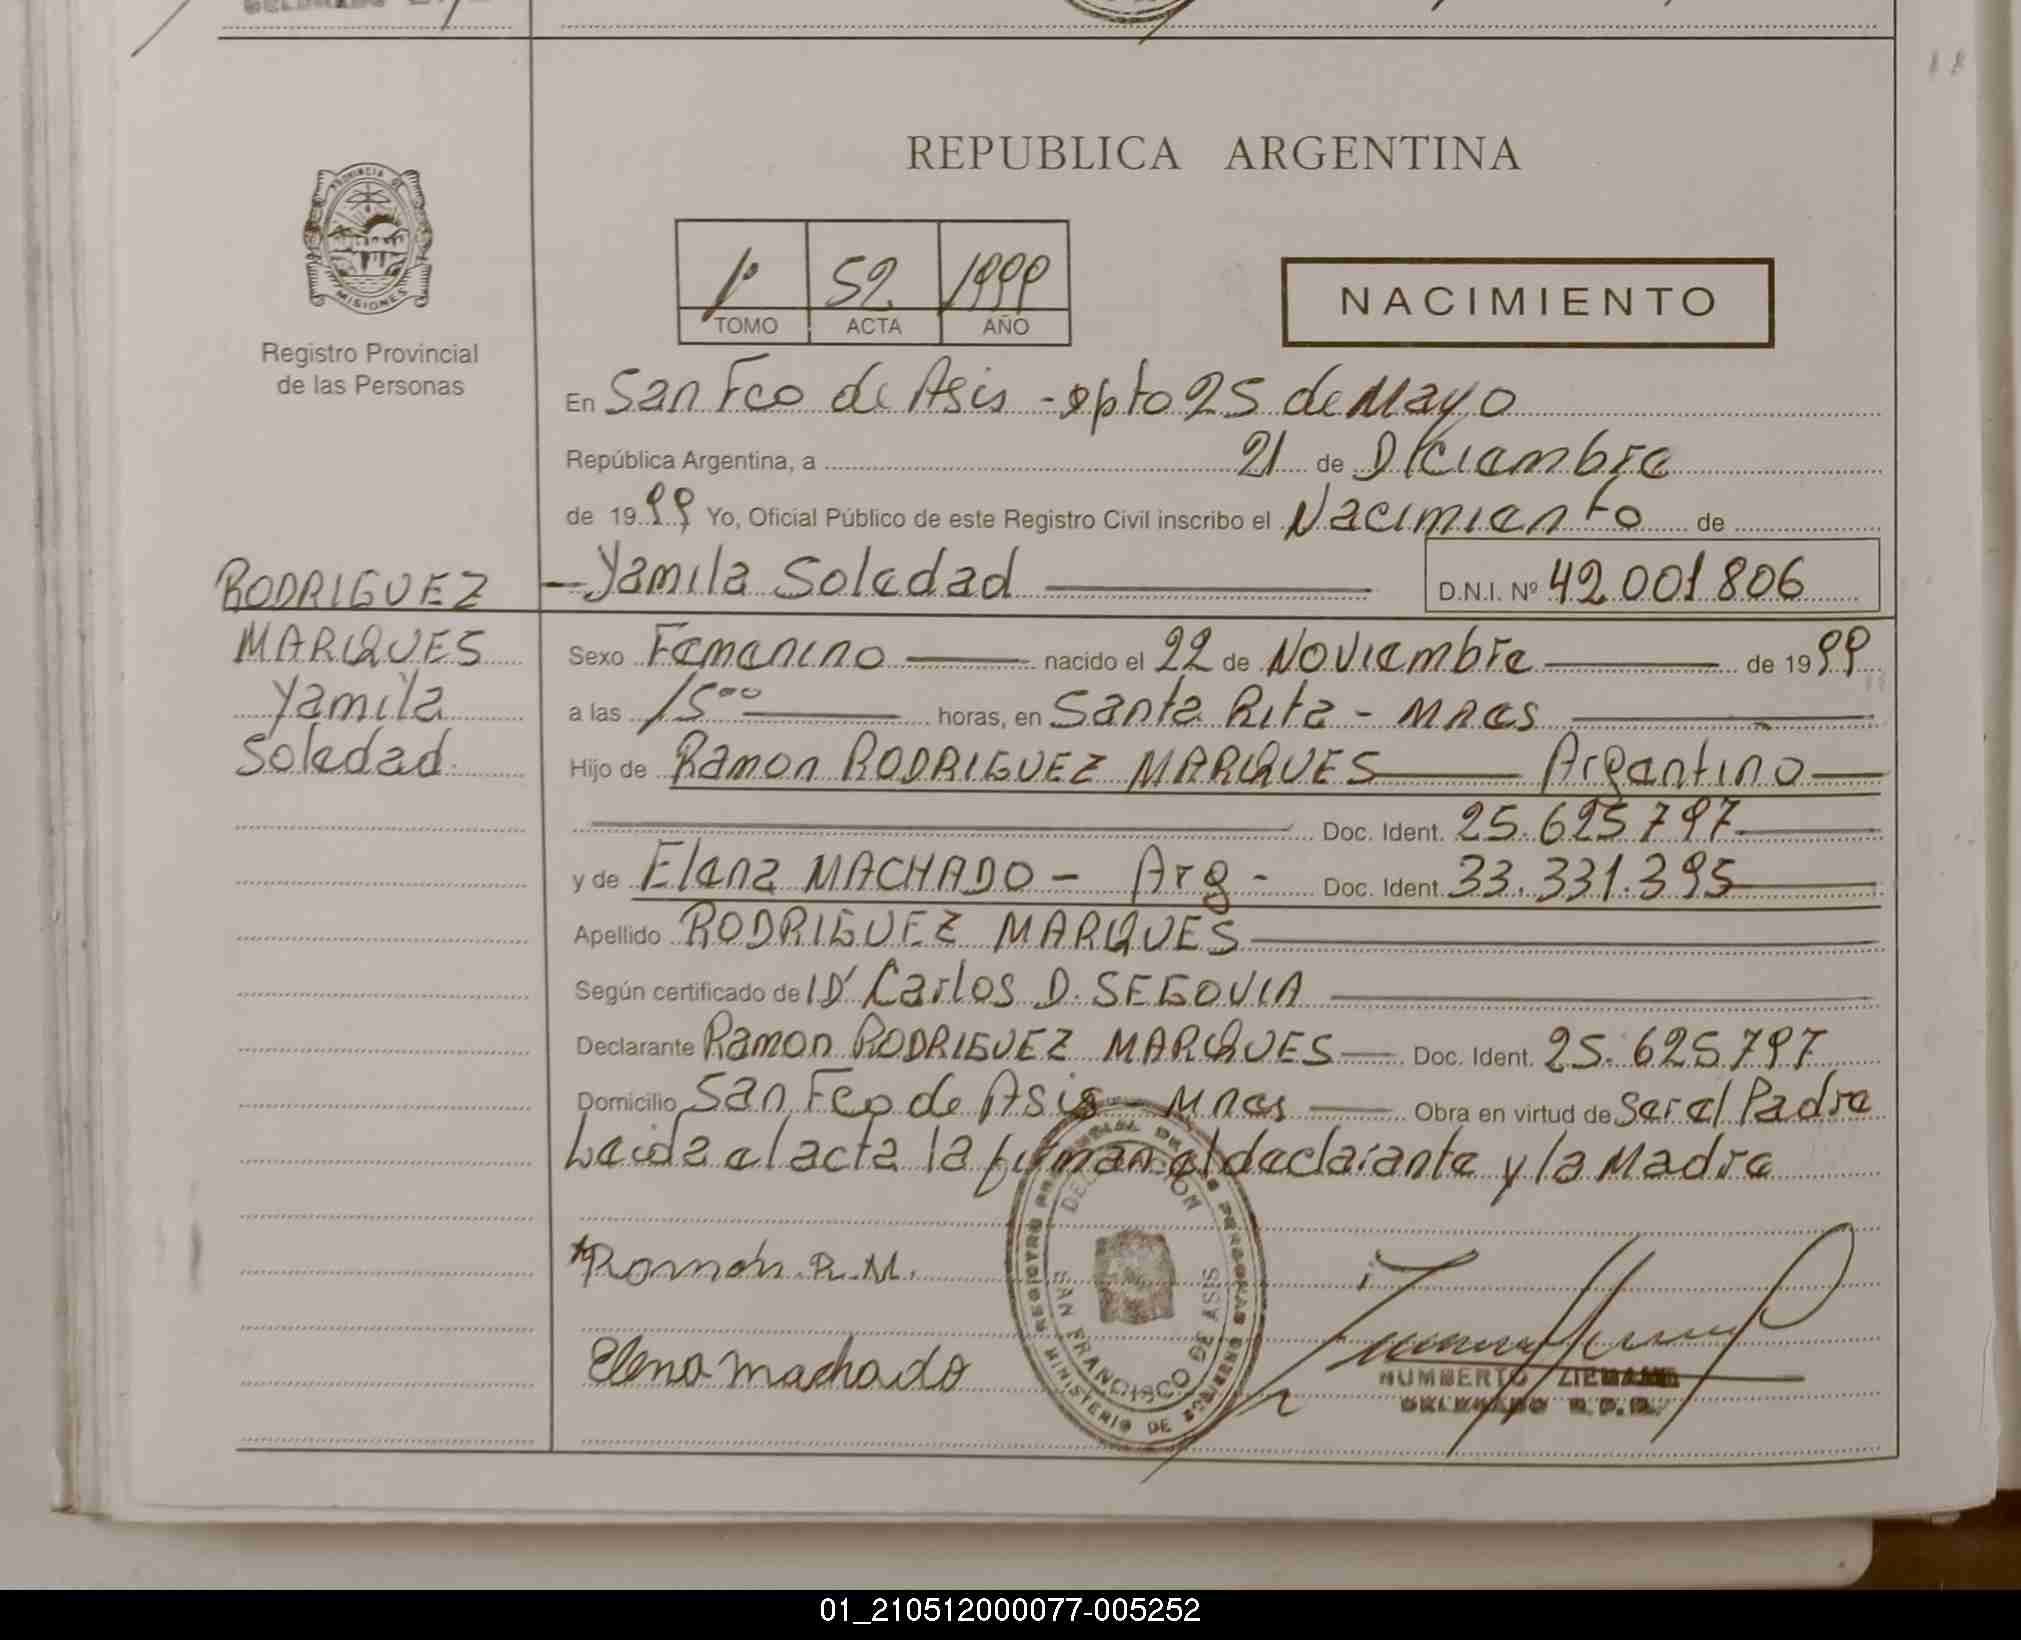 REPUBLICA ARGENTINA
PROVINCIA DE
MISIONES
Registro Provincial
de las Personas
1º 52 1999
TOMO ACTA AÑO
NACIMIENTO
En San Fco de Asis - Dpto 25 de Mayo
República Argentina, a 21 de Diciembre
de 1999 Yo, Oficial Público de este Registro Civil inscribo el Nacimiento de
RODRIGUEZ
MARQUES
Yamila
Soledad
Yamila Soledad D.N.I. Nº 42001806
Sexo Femenino nacido el 22 de Noviembre de 1999
a las 15ºº horas, en Santa Rita - Mnes
Hijo de Ramon RODRIGUEZ MARQUES Argentino
Doc. Ident. 25.625797
y de Elena MACHADO - Arg - Doc. Ident. 33.331.395
Apellido RODRIGUEZ MARQUES
Según certificado de / D' Carlos D. SEGOVIA
Declarante Ramon RODRIGUEZ MARQUES Doc. Ident. 25.625797
Domicilio San Fco de Asis - Mnes Obra en virtud de Ser el Padre
Leida el acta la firman el declarante y la Madre
Ramón R.M.
Elena Machado
REGISTRO PROVINCIAL DE LAS PERSONAS
MINISTERIO DE GOBIERNO
DELEGACION
SAN FRANCISCO DE ASIS
HUMBERTO
DELEGADO R.P.P.
01_210512000077-005252